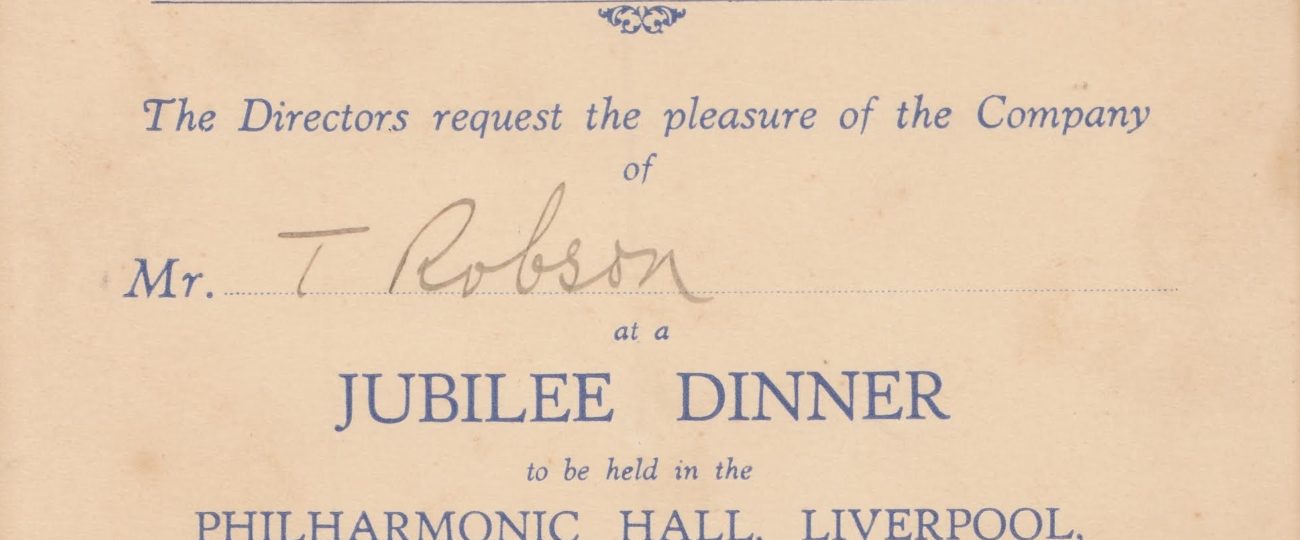 The Directors request the pleasure of the Company
of
Mr. T Robson
at a
JUBILEE DINNER
to be held in the
PHILHARMONIC HALL, LIVERPOOL,